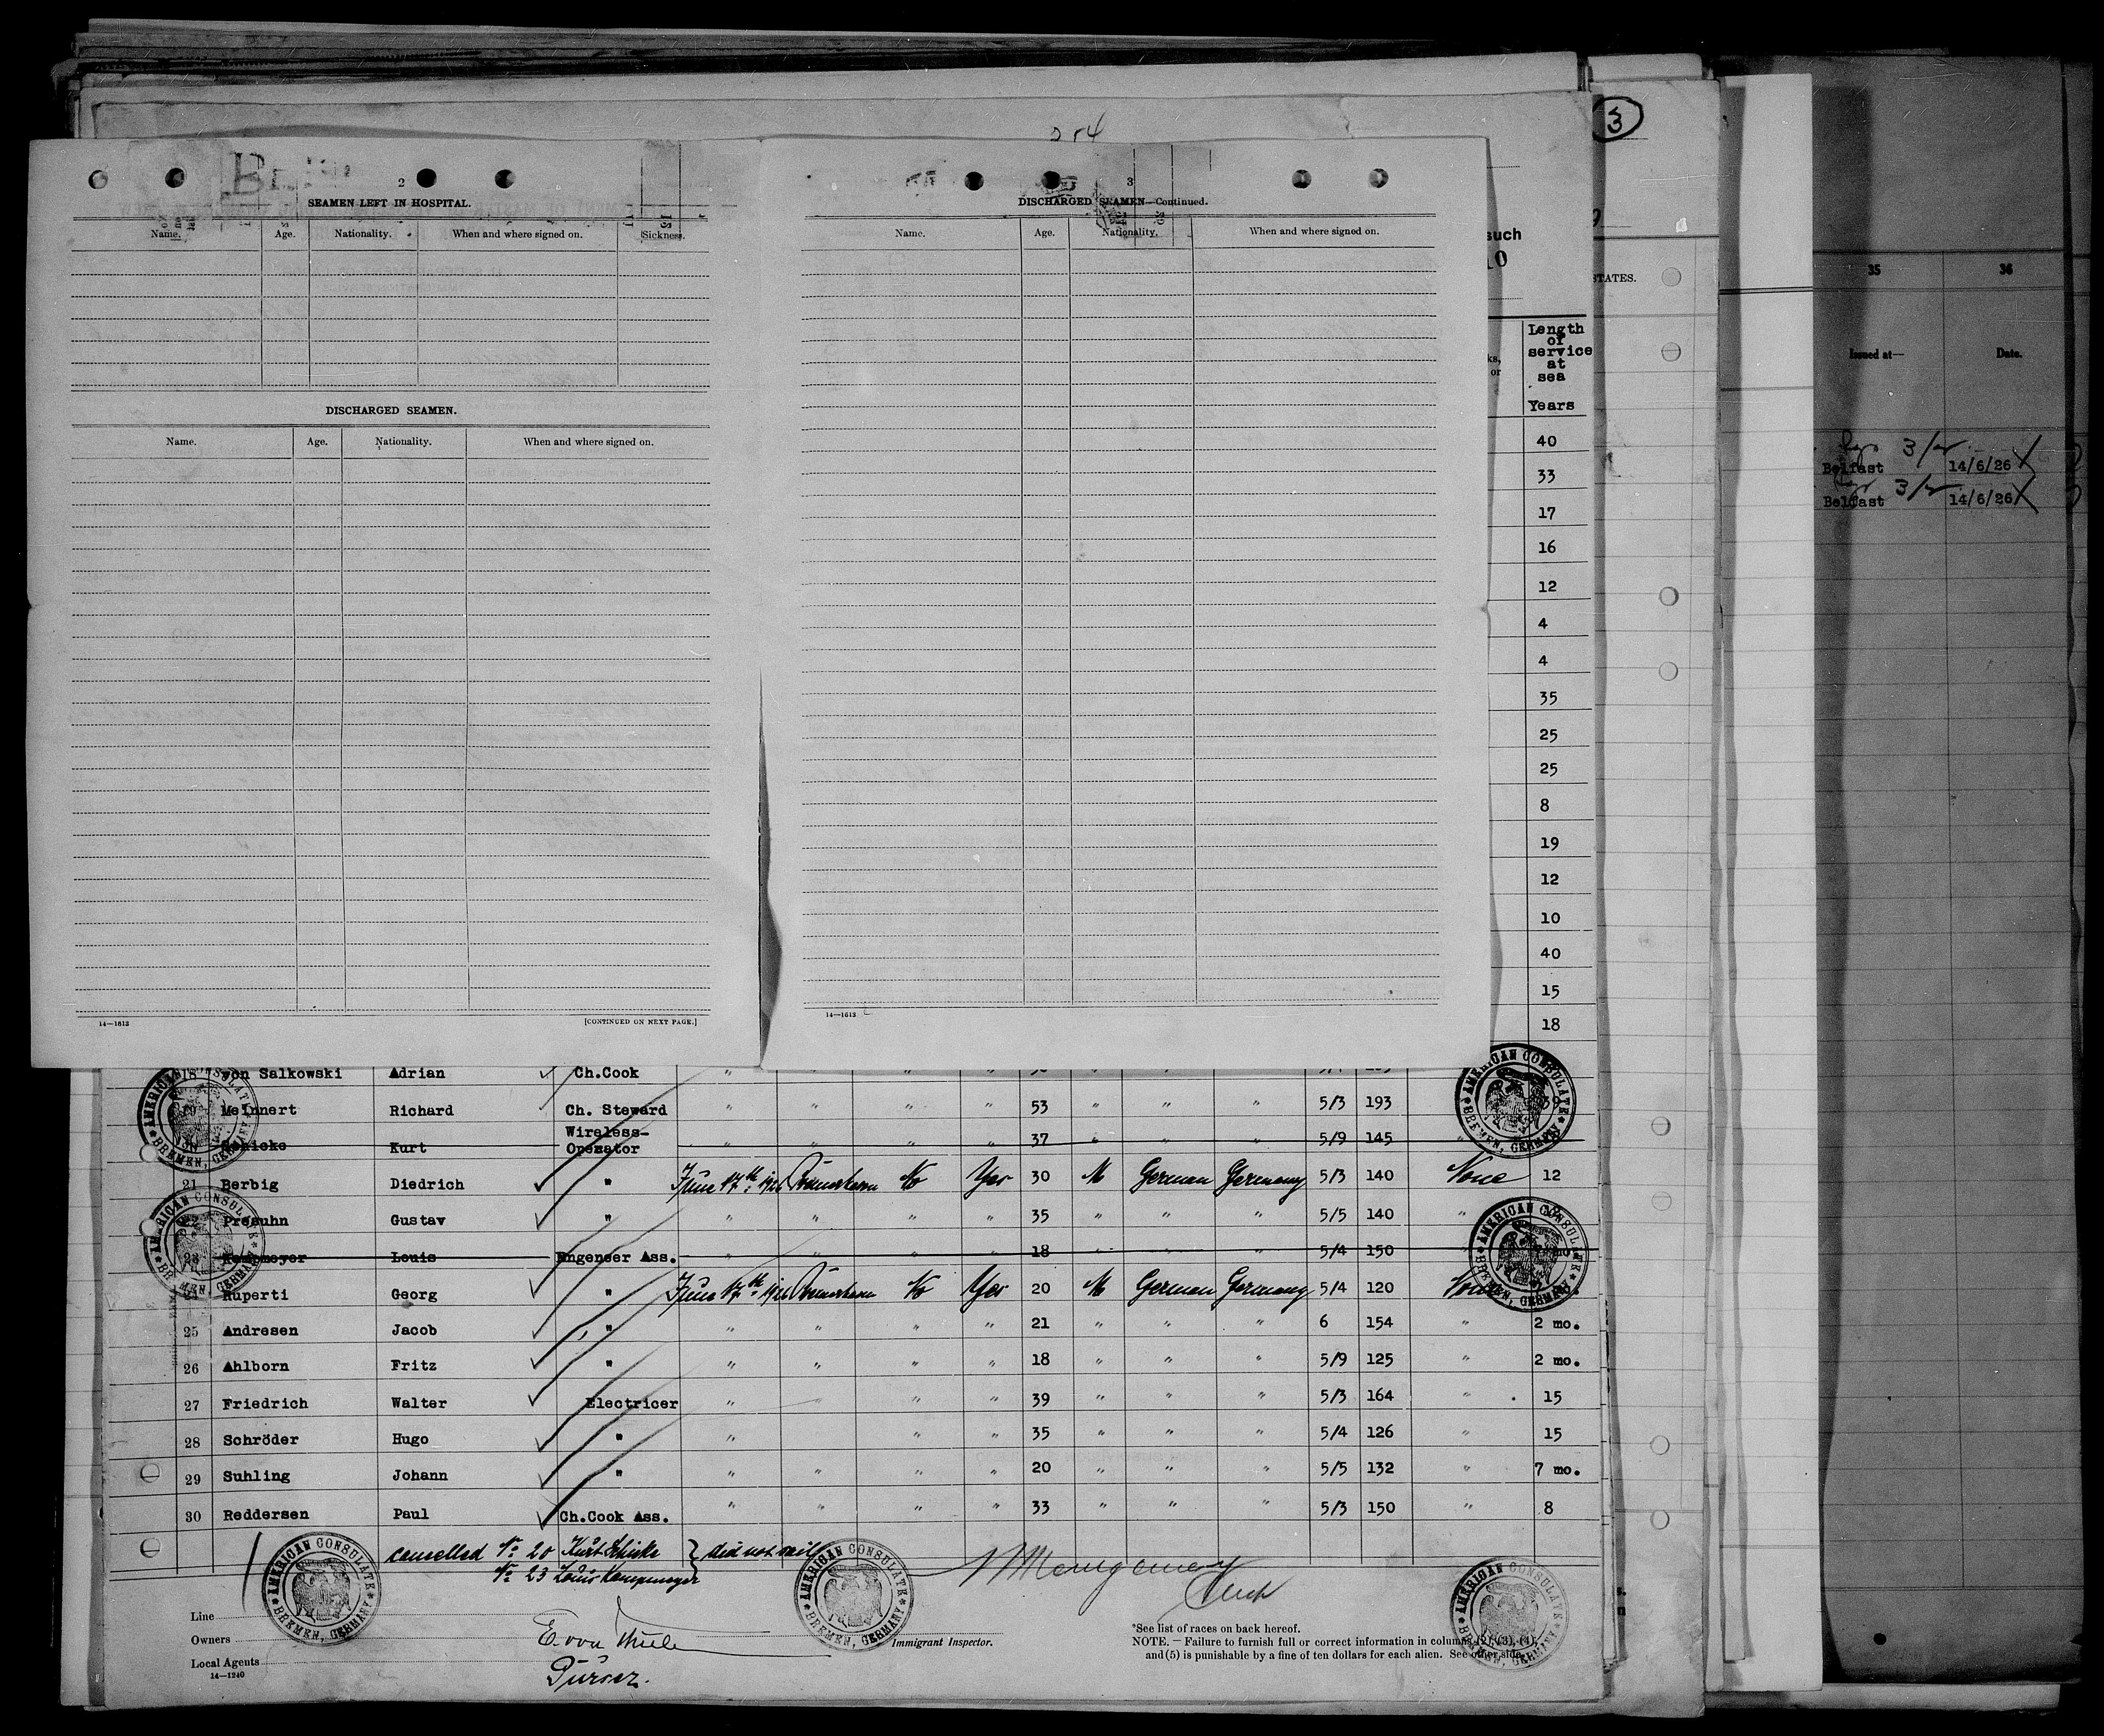 254
3
2
SEAMEN LEFT IN HOSPITAL.
Name. Age. Nationality. When and where signed on. Sickness.
DISCHARGED SEAMEN.
Name. Age. Nationality. When and where signed on.
14—1613 [CONTINUED ON NEXT PAGE.]
3
DISCHARGED SEAMEN—Continued.
Name. Age. Nationality. When and where signed on.
14—1613
such
10
STATES.
ks,
or
Length
of
service
at
sea
Years
40
33
17
16
12
4
4
35
25
25
8
19
12
10
40
15
18
35 36
Issued at— Date.
3/
Belfast 14/6/26
3/
Belfast 14/6/26
18 von Salkowski Adrian Ch.Cook
19 Meinnert Richard Ch. Steward " " " " 53 " " " 5/3 193 39
Wireless-
20 Kurt Operator " " " " 37 " " " 5/9 145 "
21 Berbig Diedrich " June 17th 1926 No Yes 30 M German Germany 5/3 140 None 12
22 Presuhn Gustav " " " " " 35 " " " 5/5 140 "
23 Kempmeyer Louis Engeneer Ass. " " " " 18 " " " 5/4 150 " mo.
24 Ruperti Georg " June 17th 1926 No Yes 20 M German Germany 5/4 120 None
25 Andresen Jacob " " " " " 21 " " " 6 154 " 2 mo.
26 Ahlborn Fritz " " " " " 18 " " " 5/9 125 " 2 mo.
27 Friedrich Walter Electricer " " " 39 " " " 5/3 164 " 15
28 Schröder Hugo " " " " 35 " " " 5/4 126 " 15
29 Suhling Johann " " " " " 20 " " " 5/5 132 " 7 mo.
30 Reddersen Paul Ch.Cook Ass. " " " " 33 " " " 5/3 150 " 8
cancelled No 20 Kurt Schicke } did not sail
No 23 Louis Kempmeyer
AMERICAN CONSULATE BREMEN, GERMANY
AMERICAN CONSULATE BREMEN, GERMANY
AMERICAN CONSULATE BREMEN, GERMANY
AMERICAN CONSULATE BREMEN, GERMANY
AMERICAN CONSULATE BREMEN, GERMANY
AMERICAN CONSULATE BREMEN, GERMANY
AMERICAN CONSULATE BREMEN, GERMANY
Line
Owners
Local Agents
14—1240
E. von Thülen
Purser.
Immigrant Inspector.
*See list of races on back hereof.
NOTE.—Failure to furnish full or correct information in columns (2), (3), (4),
and (5) is punishable by a fine of ten dollars for each alien. See other side.